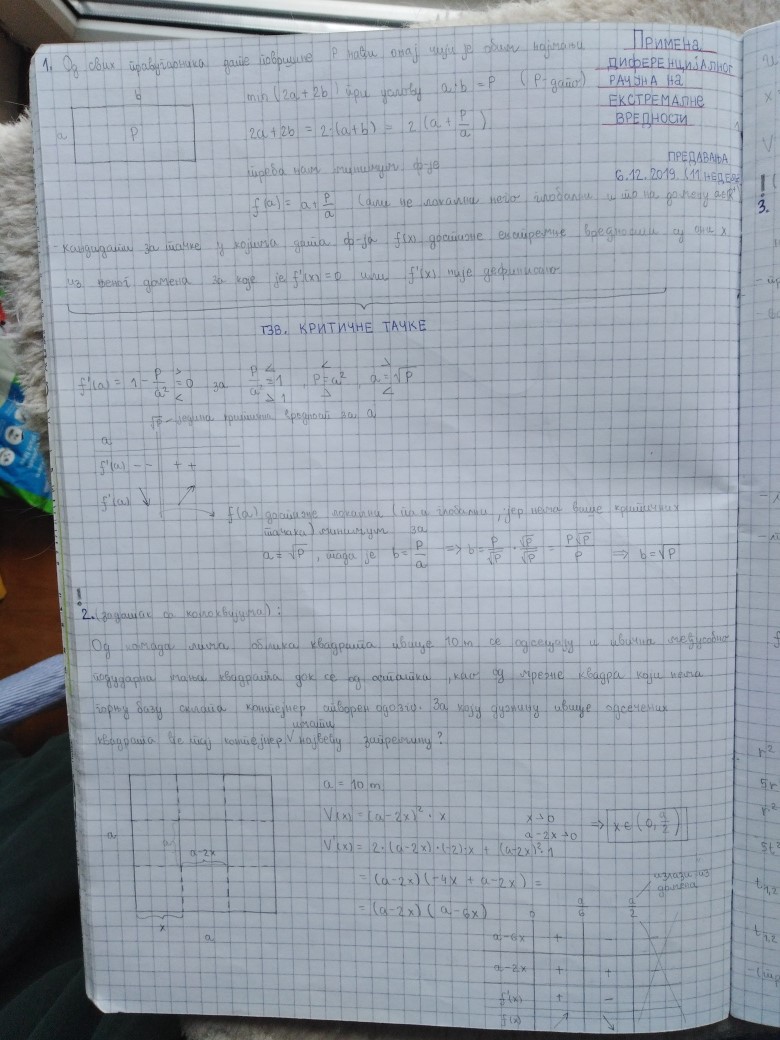 ПРИМЕНА
ДИФЕРЕНЦИЈАЛНОГ
РАЧУНА НА
ЕКСТРЕМАЛНЕ
ВРЕДНОСТИ
ПРЕДАВАЊА
6.12.2019. (11. НЕДЕЉА
1. Од свих правоугаоника дате површине P наћи онај чији је обим најмањи
b
a
P
min (2a+2b) при услову a·b = P (P-дато)
2a+2b = 2·(a+b) = 2(a + P/a)
треба нам минимум ф-је
f(a) = a + P/a (али не локални него глобални и то на домену
- кандидати за тачке у којима дата ф-ја f(x) достиже екстремне вредности су они x
из њеног домена за које је f'(x)=0 или f'(x) није дефинисано
ТЗВ. КРИТИЧНЕ ТАЧКЕ
f'(a) = 1 - P/a² = 0 за P/a² = 1, P = a², a = √P
√P - једина критична вредност за a
a
f'(a) - - + +
f'(a) ↘ ↗
f(a) достиже локални (па и глобални, јер нема више критичних
тачака) минимум за
a = √P, тада је b = P/a ⇒ b = P/√P · √P/√P = P√P/P ⇒ b = √P
!
2. (задатак са колоквијума):
Од комада лима облика квадрата ивице 10 m се одсецају 4 ивична међусобно
подударна мања квадрата док се од остатка, као од мреже квадра који нема
горњу базу склапа контејнер отворен одозго. За коју дужину ивице одсечених
имати
квадрата ће тај контејнер највећу запремину?
a = 10 m
V(x) = (a-2x)² · x
x>0
a-2x>0
⇒ x ∈ (0, a/2)
V'(x) = 2·(a-2x)·(-2)·x + (a-2x)²·1
= (a-2x)(-4x + a-2x) =
= (a-2x)(a-6x)
a
a-2x
x
a
излази из
домена
0 a/6 a/2
a-6x + -
a-2x + +
f'(x) + -
f(x) ↗ ↘
!
3.